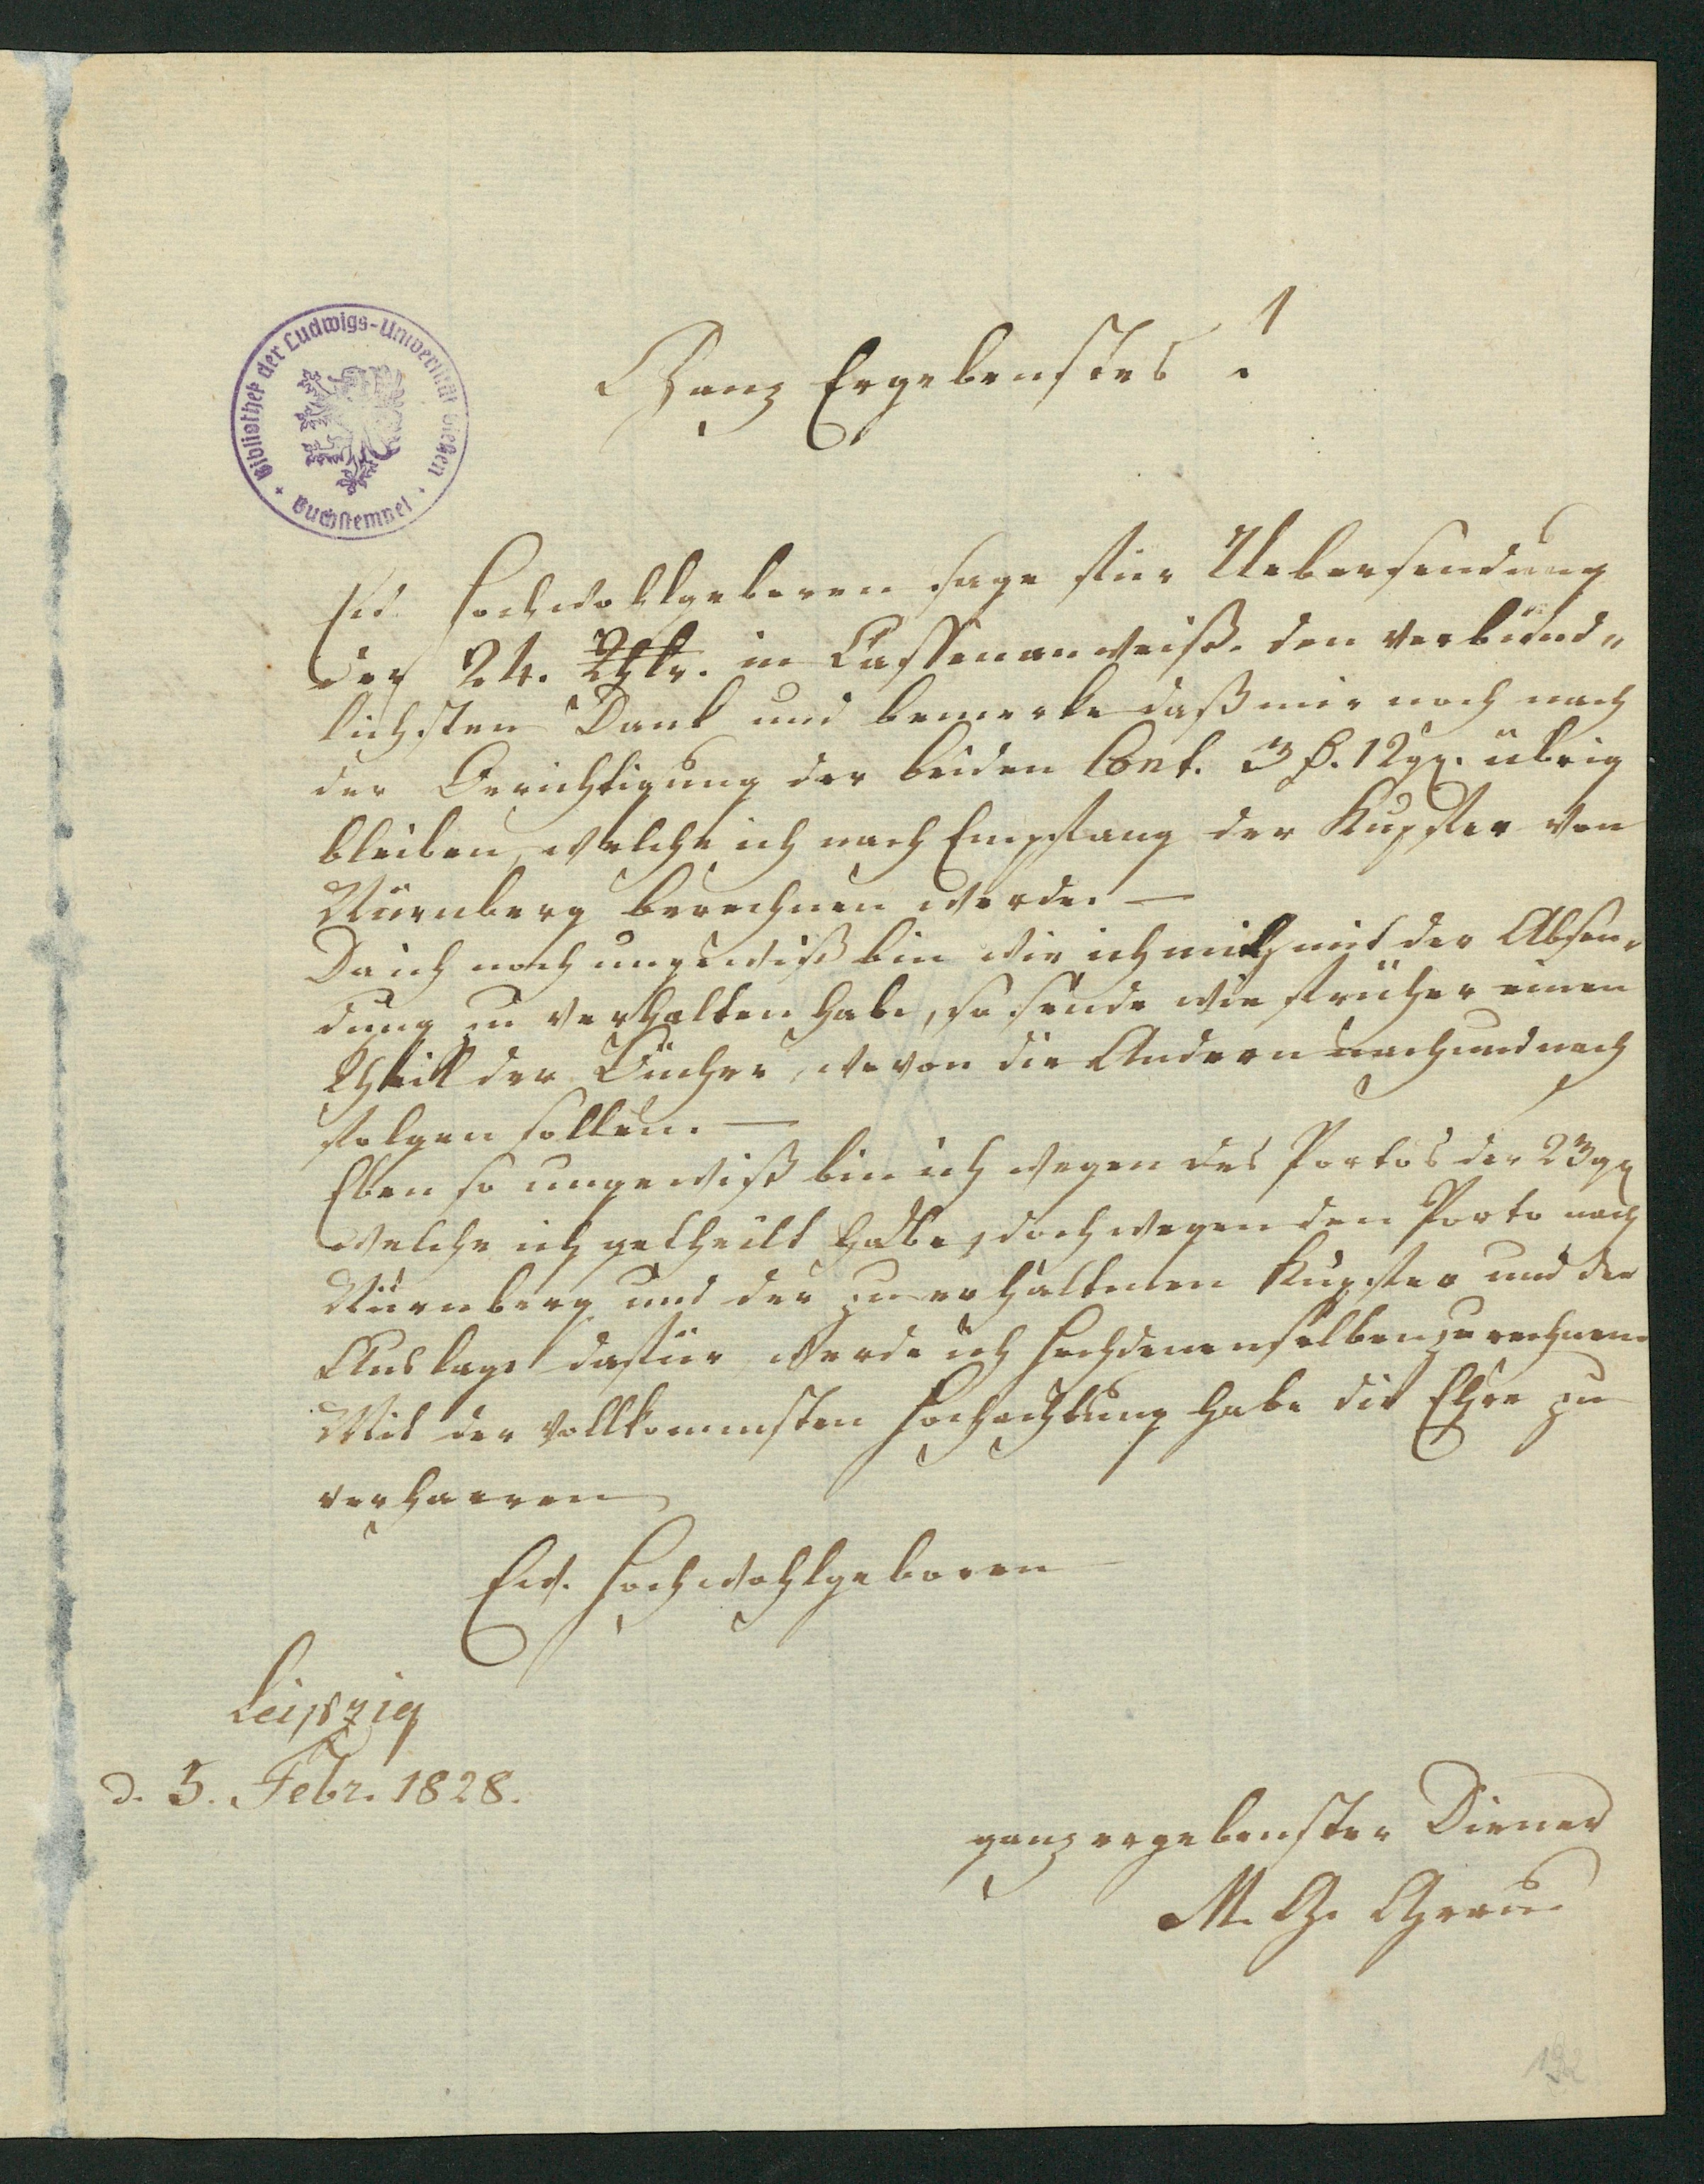 Bibliothek der Ludwigs-Universität Gießen
Buchstempel
Ganz Ergebenstes!
Ew. Hochwohlgeboren sage für Uebersendung
der 24. Rthlr. in Cassenanweiß. den verbind-
lichsten Dank und bemerke daß mir noch nach
der Berichtigung der beiden Cont. 3 f. 12 gr. übrig
bleiben, welche ich nach Empfang der Kupfer von
Nürnberg berechnen werde. —
Da ich noch ungewiß bin wie ich mich mit der Absen-
dung zu verhalten habe, so sende wie früher einen
Theil der Bücher, wovon die Andern nach und nach
folgen sollen. —
Eben so ungewiß bin ich wegen des Porto's der 23 gr
welche ich getheilt habe, doch wegen den Porto nach
Nürnberg und der zu erhaltenen Kupfer und der
Auslage dafür werde ich Hochdenenselben zu rechnen
Mit der vollkommsten Hochachtung habe die Ehre zu
verharren
Ew. Hochwohlgeboren
Leipzig
d. 5. Febr. 1828.
ganz ergebenster Diener
M. G. Grau